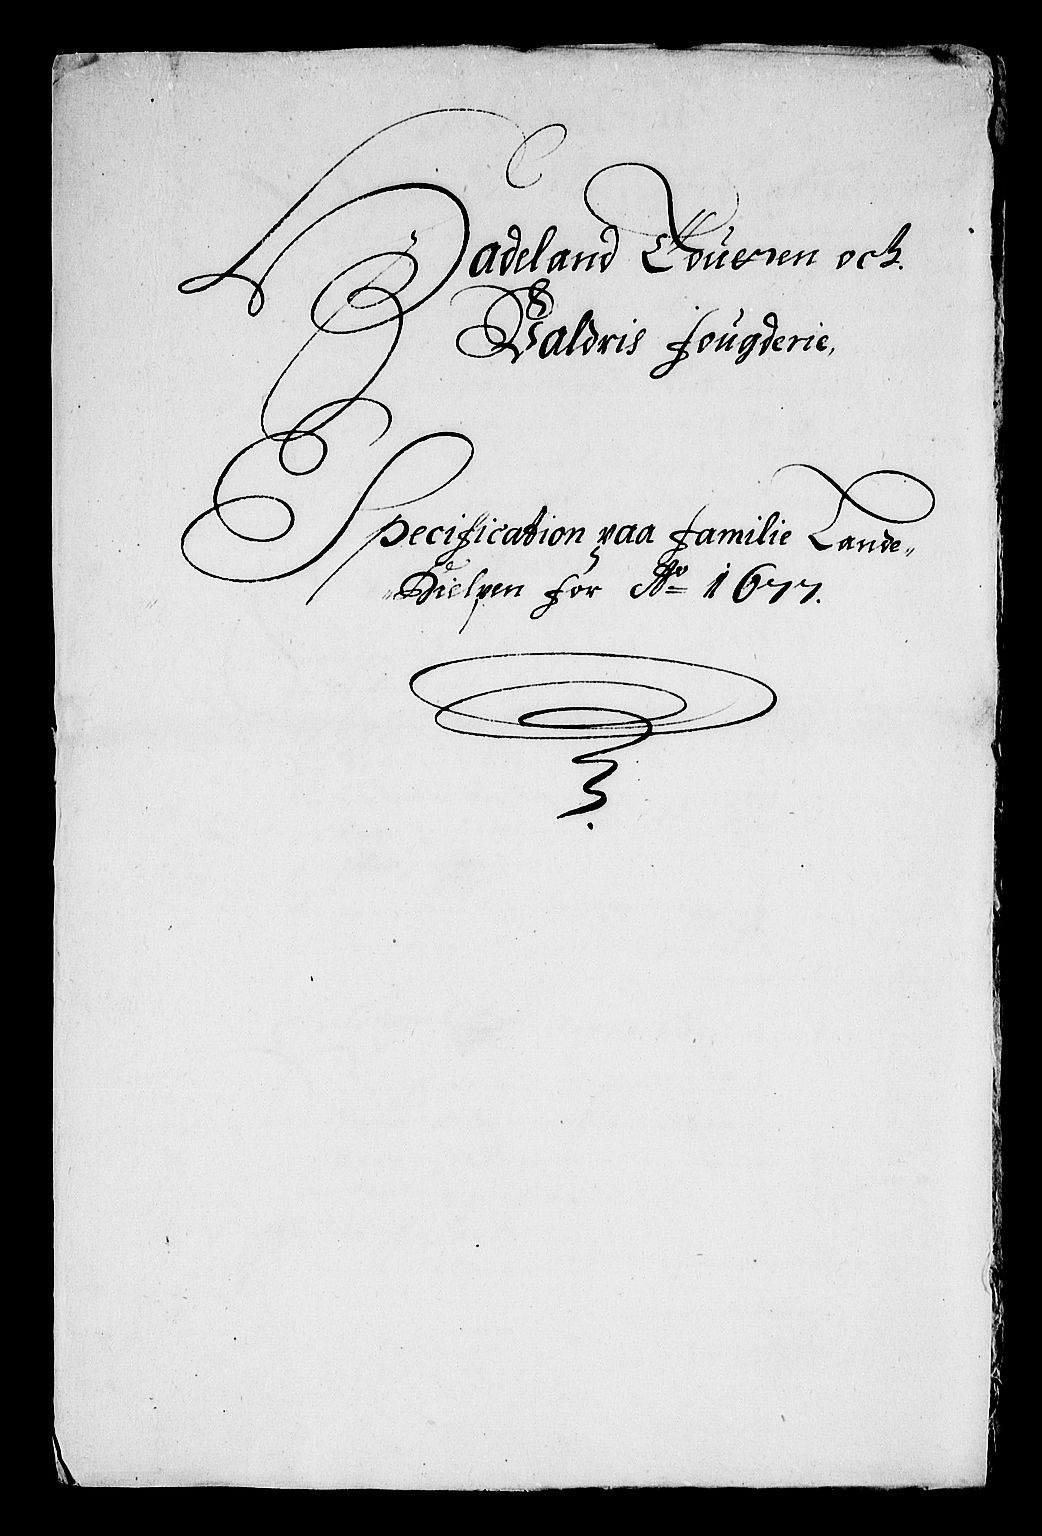 Hadeland Touten och
Valdris fougderie,
Specification paa familie Lande„
„Hielpen for Ao 1677.